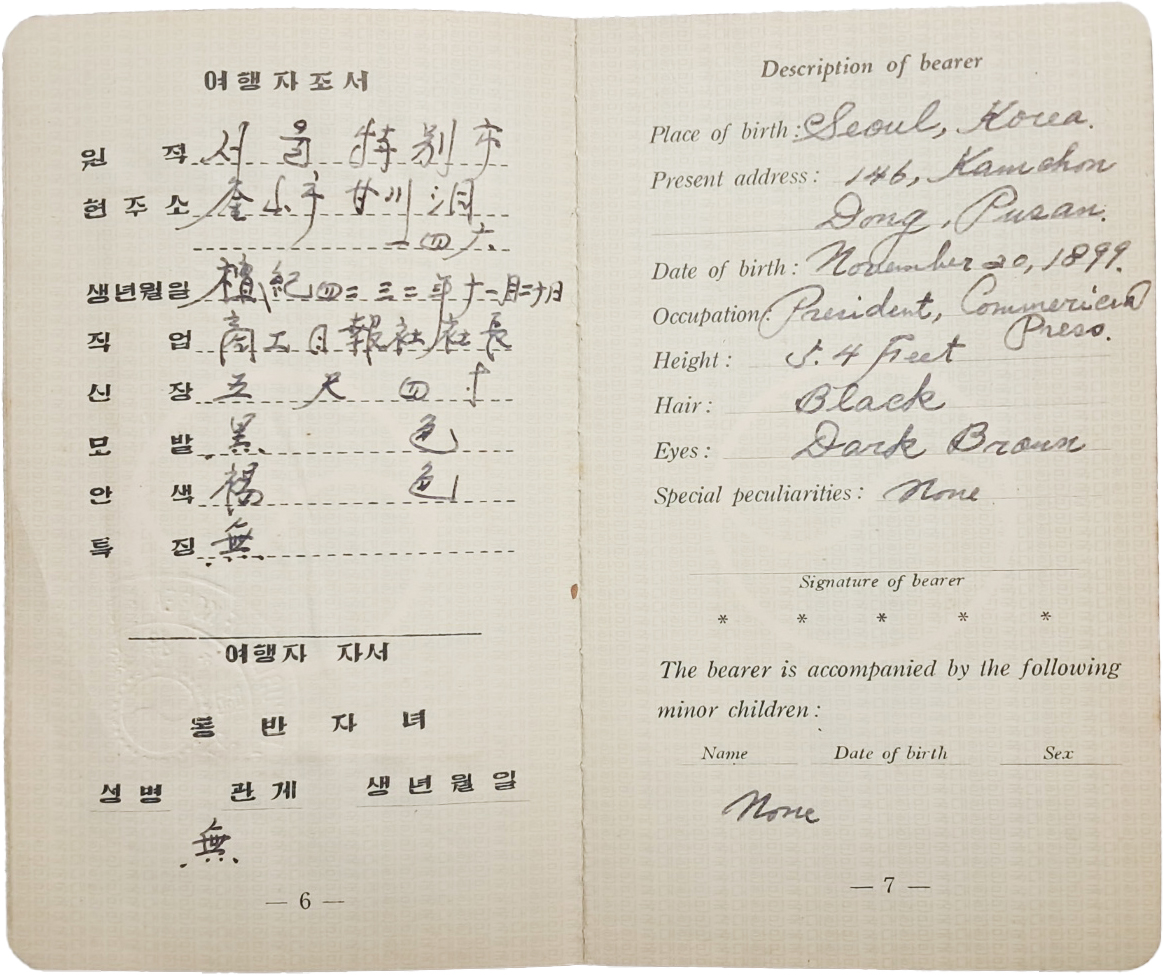 여행자조서
원 적 서울特別市
현주소 釜山市甘川洞
一四六
생년월일 檀紀四二三二年十一月二十日
직 업 商工日報社社長
신 장 五尺四寸
모 발 黑色
안 색 褐色
특 징 無
여행자 자서
동 반 자 녀
성 병 관 계 생 년 월 일
無
— 6 —
Description of bearer
Place of birth: Seoul, Korea.
Present address: 146, Kamchon
Dong, Pusan.
Date of birth: November 20, 1899.
Occupation: President, Commerical
Press.
Height: 5.4 Feet
Hair: Black
Eyes: Dark Brown
Special peculiarities: None
Signature of bearer
* * * * *
The bearer is accompanied by the following
minor children:
Name Date of birth Sex
None
— 7 —